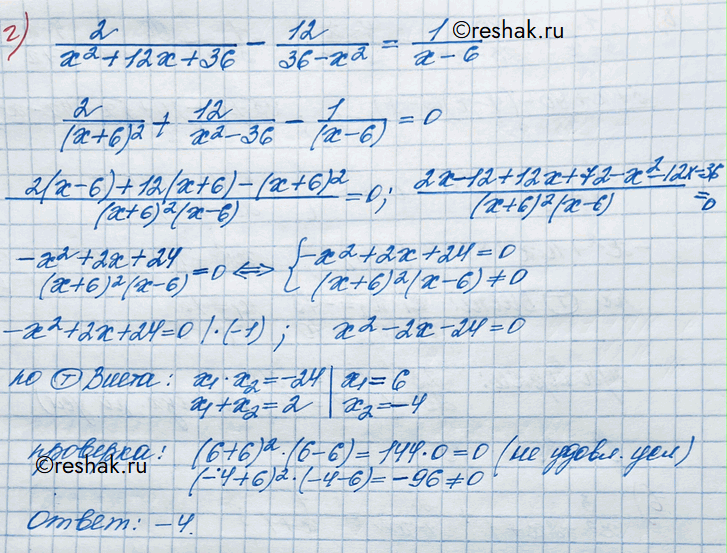 ©reshak.ru
г) 2/(x²+12x+36) - 12/(36-x²) = 1/(x-6)
2/(x+6)² + 12/(x²-36) - 1/(x-6) = 0
(2(x-6)+12(x+6)-(x+6)²)/((x+6)²(x-6)) = 0; (2x-12+12x+72-x²-12x-36)/((x+6)²(x-6)) = 0
(-x²+2x+24)/((x+6)²(x-6)) = 0 ⇔ { -x²+2x+24=0
(x+6)²(x-6)≠0
-x²+2x+24=0 |·(-1); x²-2x-24=0
по Т Виета: x₁·x₂=-24 | x₁=6
x₁+x₂=2 | x₂=-4
проверка: (6+6)²·(6-6)=144·0=0 (не удовл. усл)
©reshak.ru
(-4+6)²·(-4-6)=-96≠0
Ответ: -4.